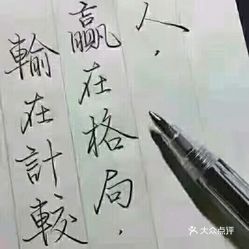 人，
贏在格局，
輸在計較
大众点评